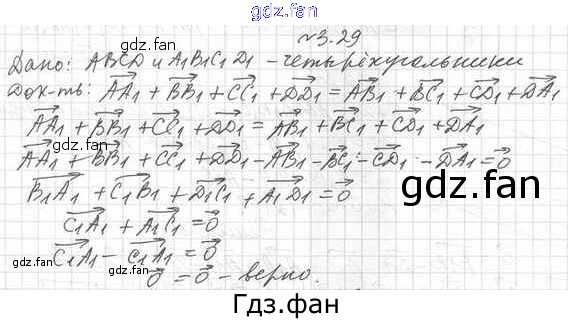 gdz.fan
№3.29
Дано: ABCD и A₁B₁C₁D₁ - четырёхугольники
Док-ть: AA₁ + BB₁ + CC₁ + DD₁ = AB₁ + BC₁ + CD₁ + DA₁
AA₁ + BB₁ + CC₁ + DD₁ = AB₁ + BC₁ + CD₁ + DA₁
AA₁ + BB₁ + CC₁ + DD₁ - AB₁ - BC₁ - CD₁ - DA₁ = 0
B₁A₁ + C₁B₁ + D₁C₁ + A₁D₁ = 0
gdz.fan
C₁A₁ + A₁C₁ = 0
C₁A₁ - C₁A₁ = 0
0 = 0 - верно.
gdz.fan
Гдз.фан